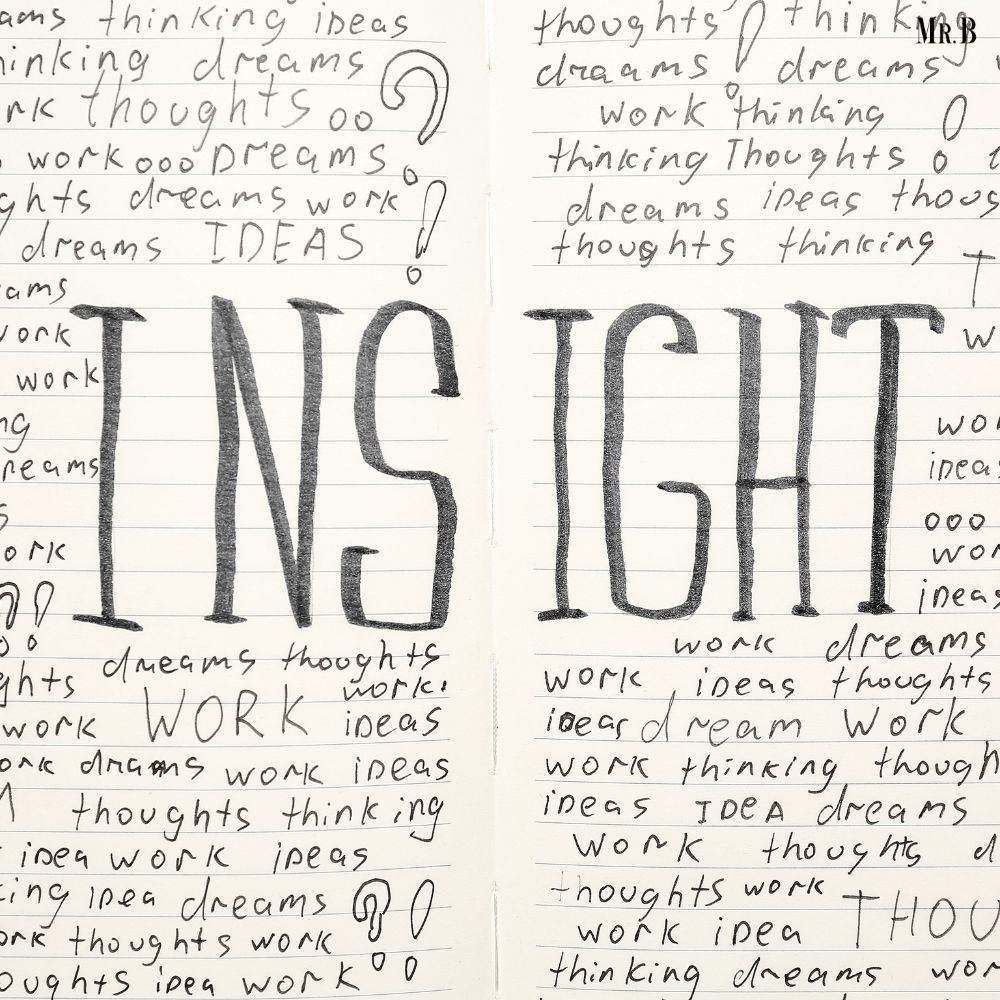 thinking ideas
thinking dreams
work thoughts oo
work ooo Dreams
dreams work
dreams IDEAS
work
work
INS
dmeams thoughts
work.
work WORK ideas
drnams work ideas
thoughts thinking
idea work ideas
idea dreams
thoughts work
thoughts idea work
thoughts! thinking
Mr. B
draams dreams
work thinking
thinking Thoughts
dreams ideas
thoughts thinking
IGHT
ooo
ideas
work dreams
work ideas thoughts
ideas dream Work
work thinking
ideas IDEA dreams
Work thoughts
thoughts work
work idea
thinking dreams